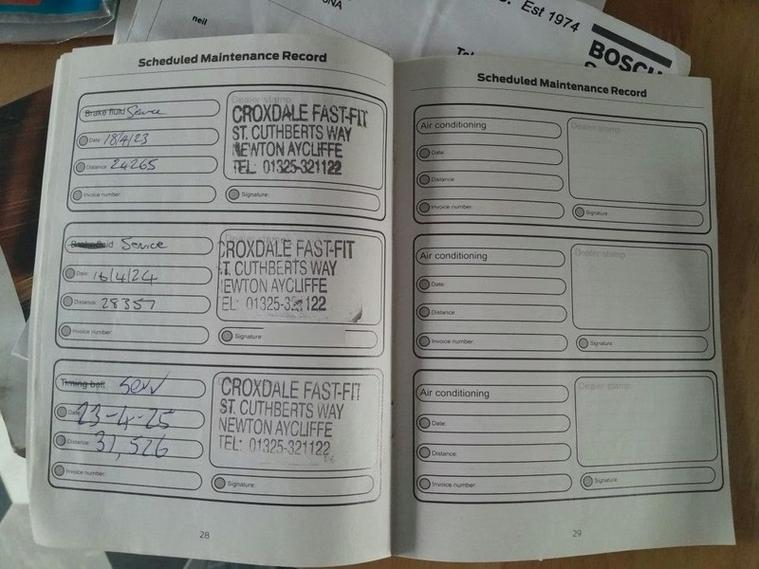 neil
Est 1974
BOSCH
Scheduled Maintenance Record
Brake fluid Service
Date: 18/4/23
Distance: 24265
Invoice number:
Dealer stamp
CROXDALE FAST-FIT
ST. CUTHBERTS WAY
NEWTON AYCLIFFE
TEL: 01325-321122
Signature:
Brake fluid Service
Date: 16/4/24
Distance: 28357
Invoice number:
CROXDALE FAST-FIT
ST. CUTHBERTS WAY
NEWTON AYCLIFFE
TEL: 01325-321122
Signature:
Timing belt Serv
Date: 23-4-25
Distance: 31,526
Invoice number:
CROXDALE FAST-FIT
ST. CUTHBERTS WAY
NEWTON AYCLIFFE
TEL: 01325-321122
Signature:
28
Scheduled Maintenance Record
Air conditioning
Date:
Distance:
Invoice number:
Dealer stamp
Signature
Air conditioning
Date:
Distance:
Invoice number:
Dealer stamp
Signature:
Air conditioning
Date:
Distance:
Invoice number:
Dealer stamp
Signature:
29